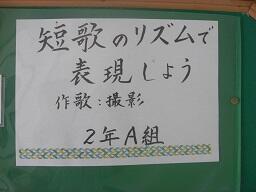 短歌のリズムで
表現しよう
作歌:撮影
2年A組